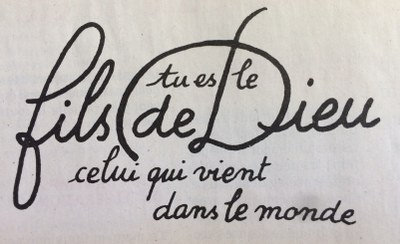 tu es le
fils de Dieu
celui qui vient
dans le monde